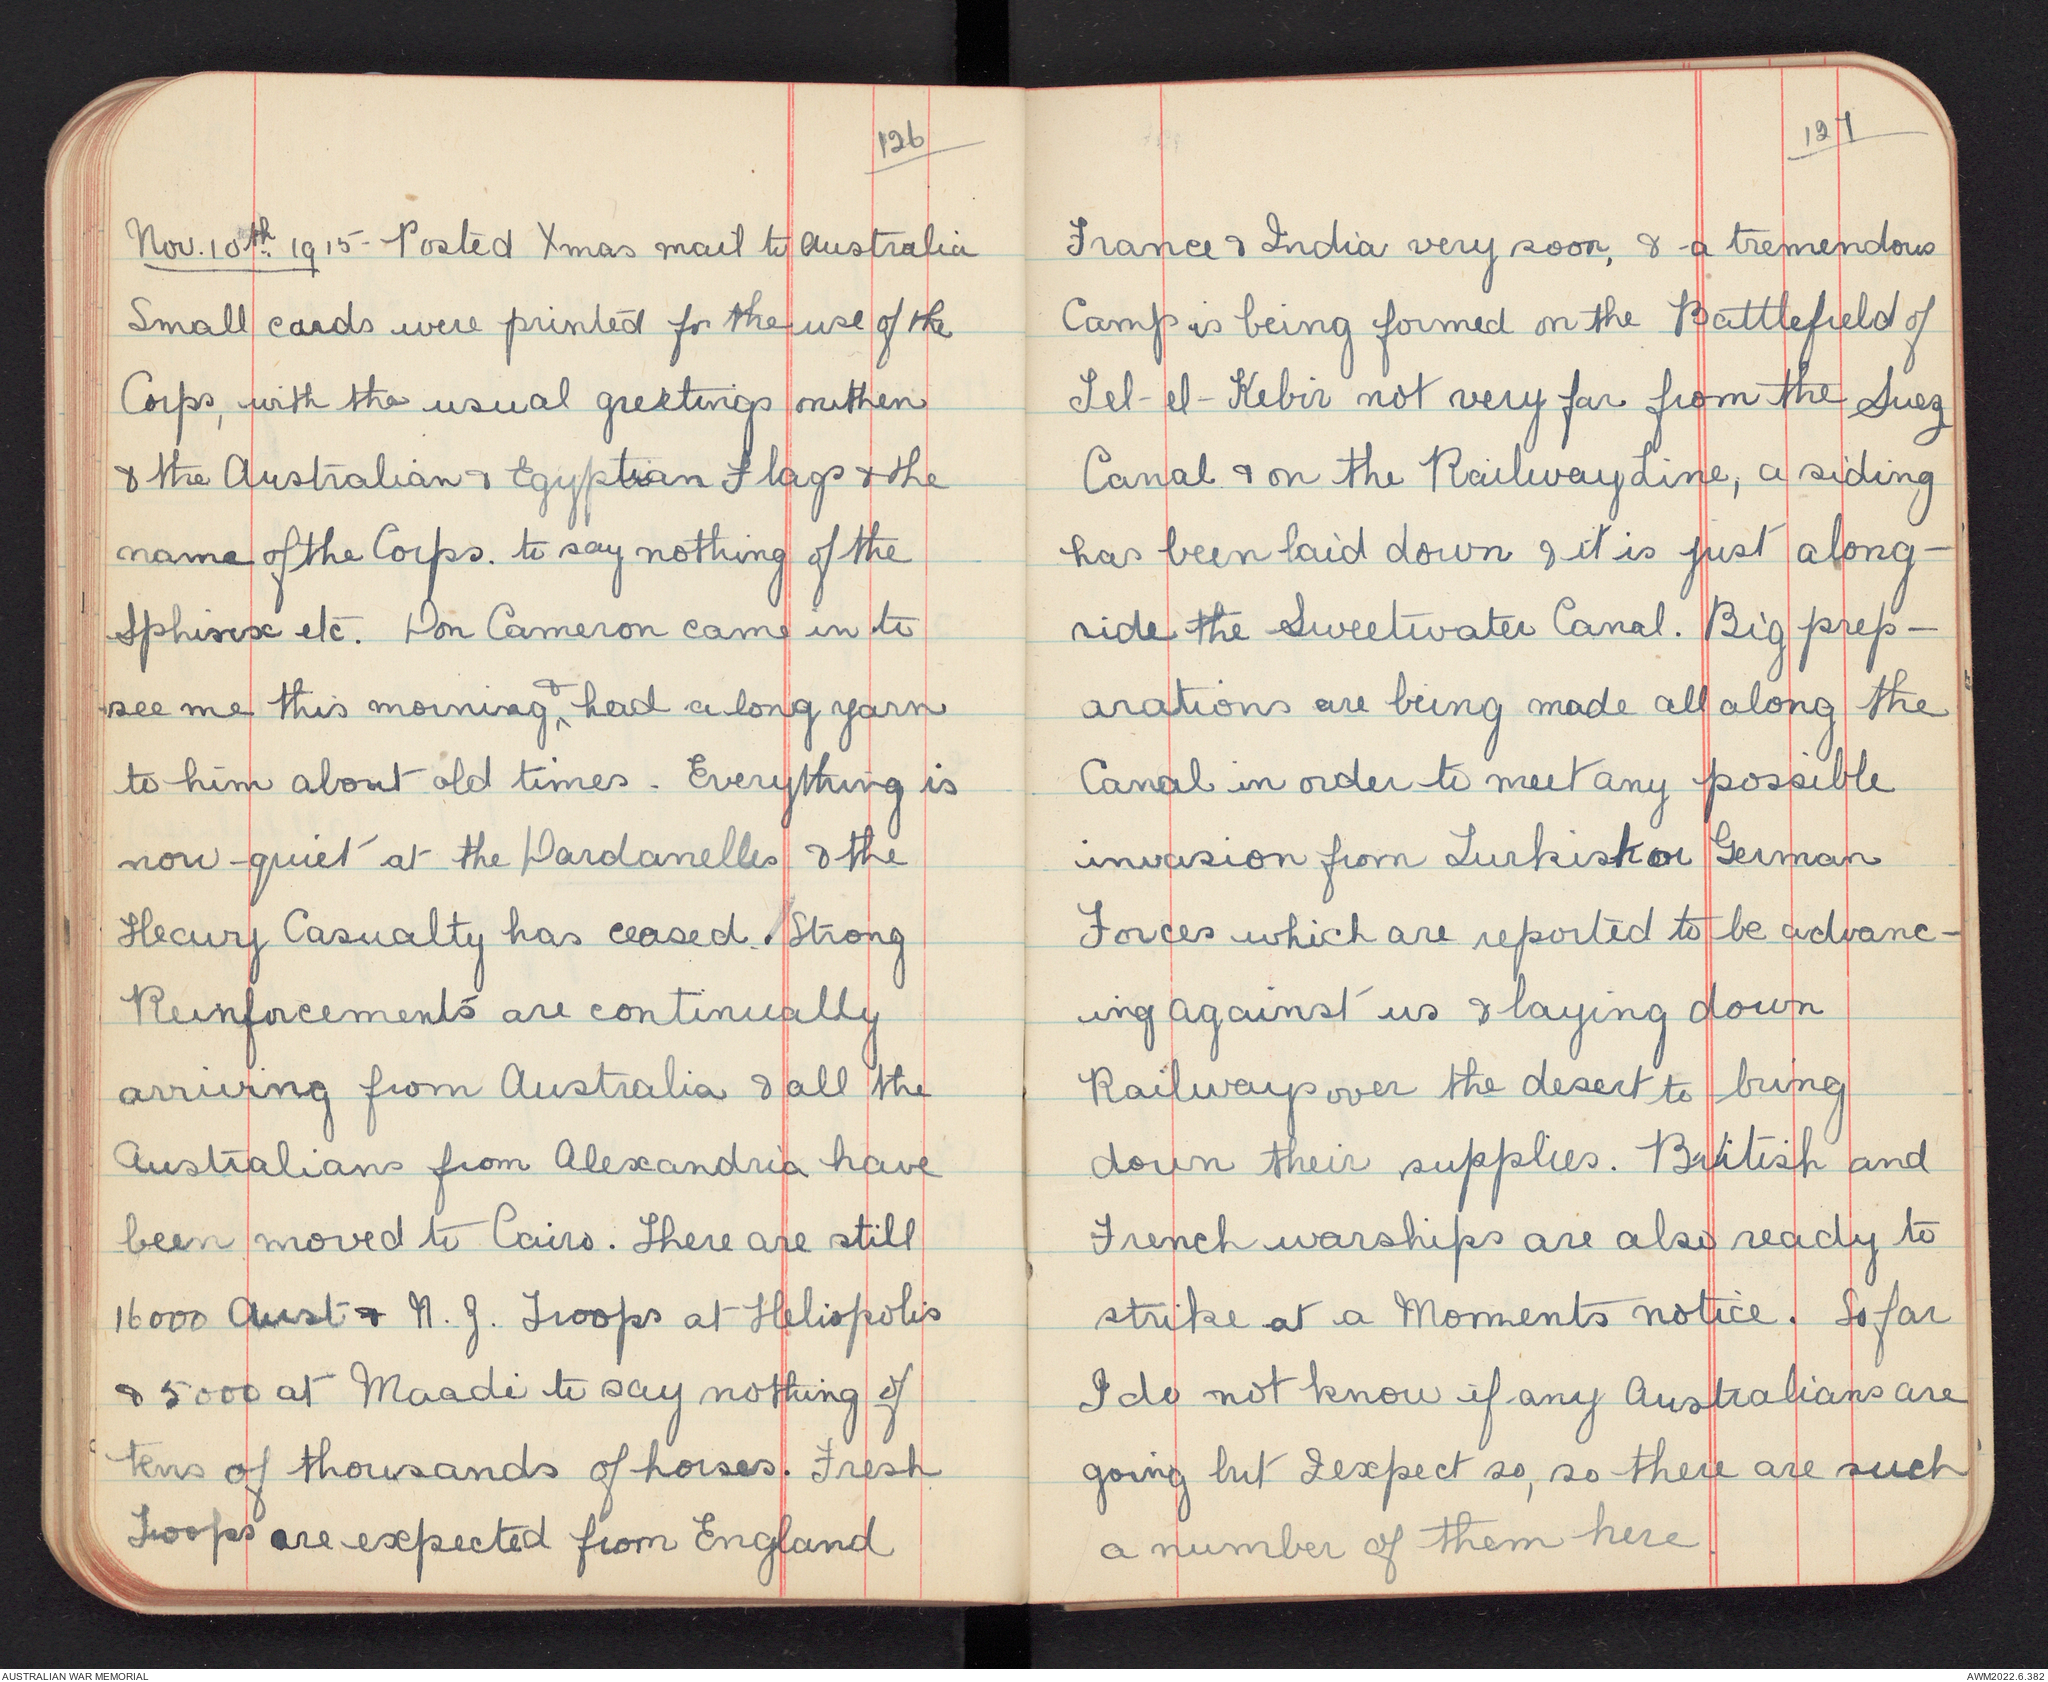 126
Nov. 10th. 1915 - Posted Xmas mail to Australia
Small cards were printed for the use of the
Corps, with the usual greetings on them
& the Australian & Egyptian Flags & the
name of the Corps. to say nothing of the
Sphinx etc. Don Cameron came in to
see me this morning & had a long yarn
to him about old times. Everything is
now quiet at the Dardanelles & the
Heavy Casualty has ceased. Strong
Reinforcements are continually
arriving from Australia & all the
Australians from Alexandria have
been moved to Cairo. There are still
16000 Aust & N. Z. Troops at Heliopolis
& 5000 at Maadi to say nothing of
tens of thousands of horses. Fresh
Troops are expected from England
127
France & India very soon, & a tremendous
Camp is being formed on the Battlefield of
Tel-el-Kebir not very far from the Suez
Canal & on the Railway Line, a siding
has been laid down & it is just along-
side the Sweetwater Canal. Big prep-
arations are being made all along the
Canal in order to meet any possible
invasion from Turkish or German
Forces which are reported to be advanc-
ing against us & laying down
Railways over the desert to bring
down their supplies. British and
French warships are also ready to
strike at a Moments notice. So far
I do not know if any Australians are
going but I expect so, so there are such
a number of them here.
AUSTRALIAN WAR MEMORIAL
AWM2022.6.382